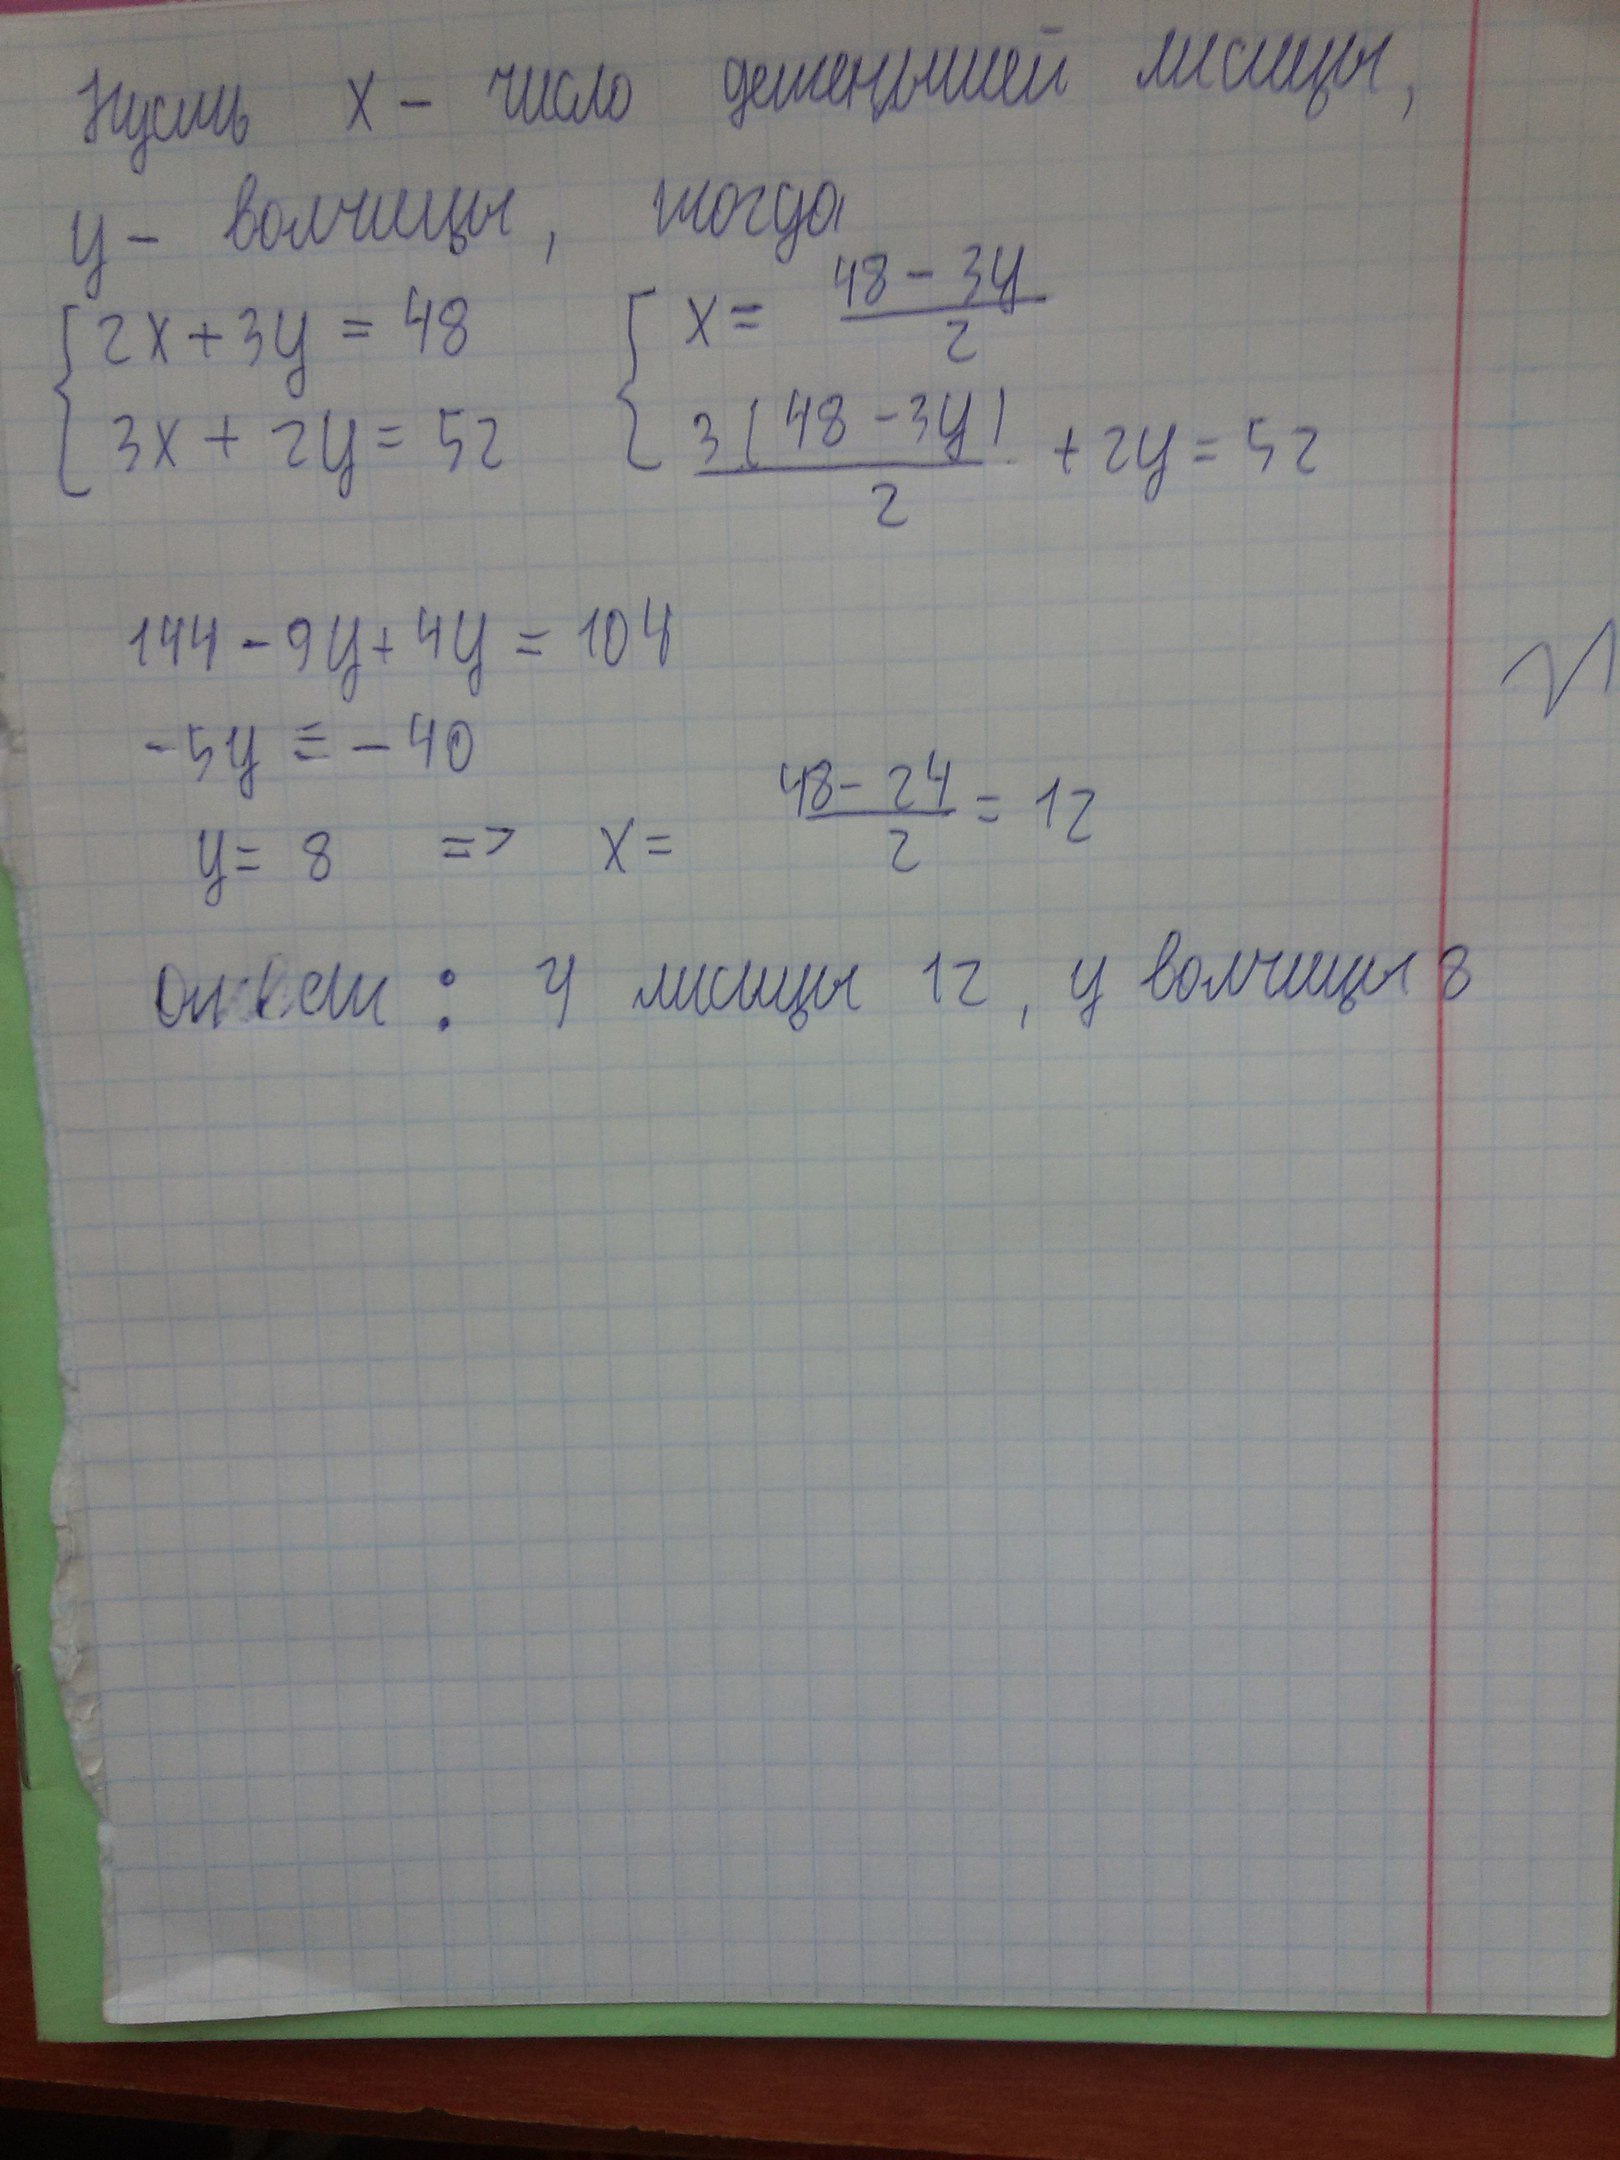 Пусть x - число детенышей лисицы,
y - волчицы, тогда
{ 2x + 3y = 48 { x = (48 - 3y)/2
{ 3x + 2y = 52 { 3(48 - 3y)/2 + 2y = 52
144 - 9y + 4y = 104
-5y = -40
y = 8 => x = (48 - 24)/2 = 12
Ответ : у лисицы 12, у волчицы 8